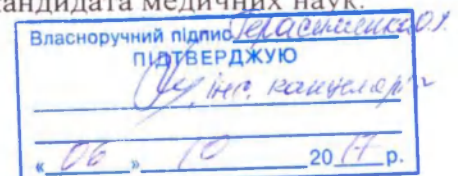 кандидата медичних наук.
Власноручний підпис Герасименка О.І.
ПІДТВЕРДЖУЮ
інс. канцелярії
« 06 » 10 2017 р.